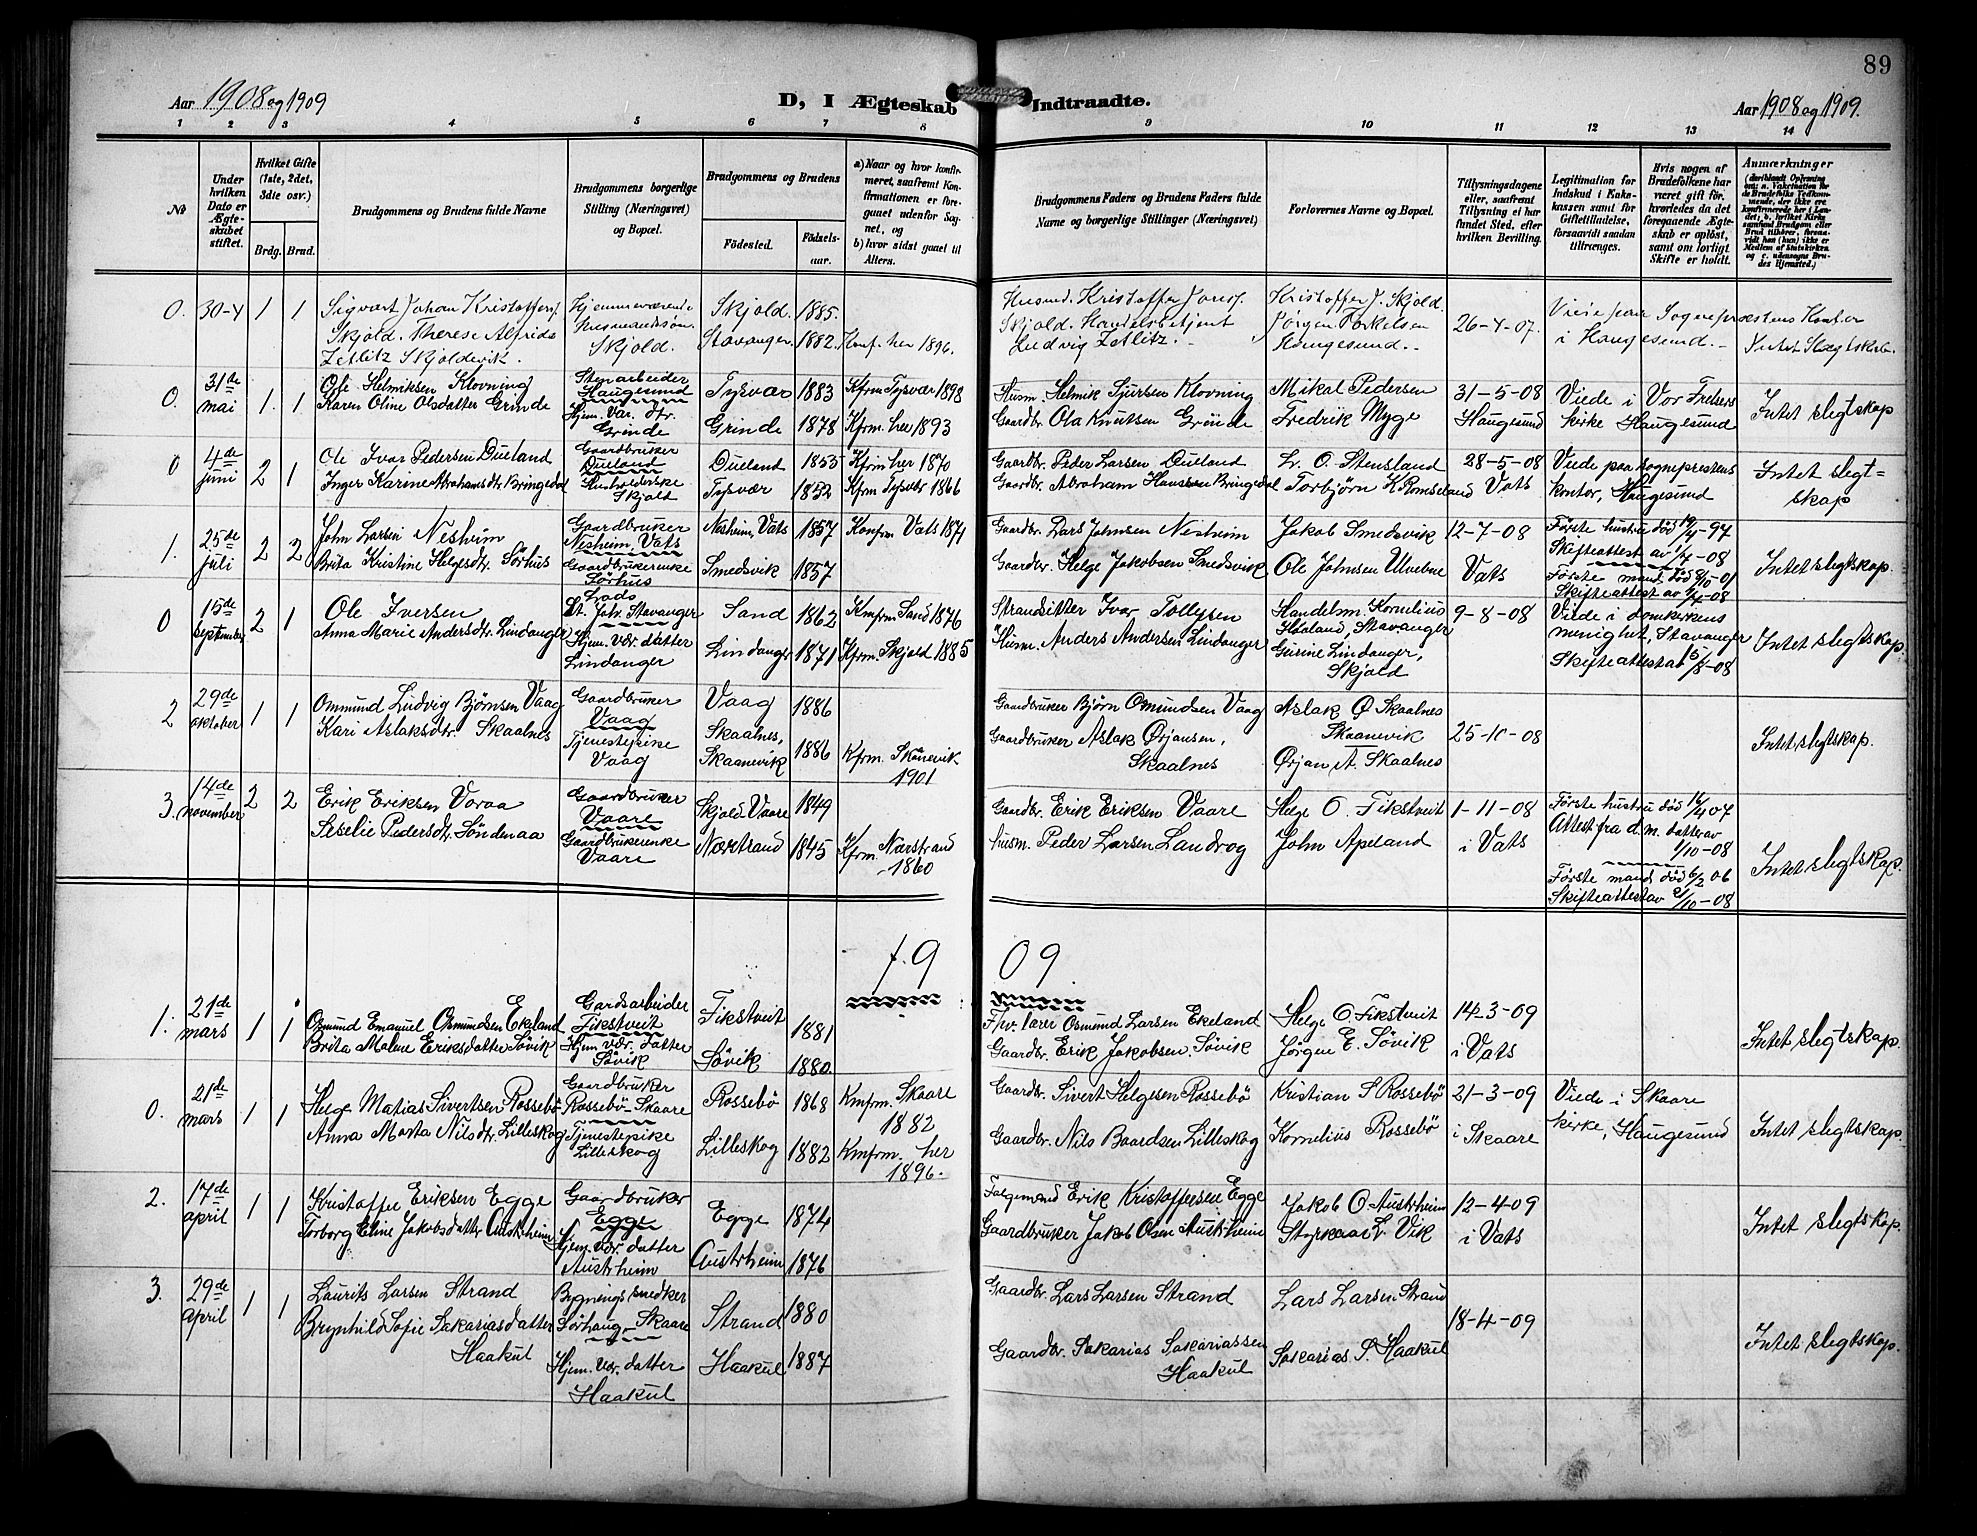 89
Aar 1908 og 1909
D, I Ægteskab Indtraadte.
Aar 1908 og 1909.
1 2 3 4 5 6 7 8 9 10 11 12 13 14
No
Under hvilken Dato er Ægteskabet stiftet.
Hvilket Gifte (1ste, 2det, 3die osv.)
Brdg. Brud.
Brudgommens og Brudens fulde Navne
Brudgommens borgerlige Stilling (Næringsvei) og Bopæl.
Brudgommens og Brudens
Födested. Födselsaar.
a) Naar og hvor konfirmeret, saafremt Konfirmationen er foregaaet udenfor Sognet, og
b) hvor sidst gaaet til Alters.
Brudgommens Faders og Brudens Faders fulde Navne og borgerlige Stillinger (Næringsvei)
Forlovernes Navne og Bopæl.
Tillysningsdagene eller, saafremt Tillysning ei har fundet Sted, efter hvilken Bevilling.
Legitimation for Indskud i Enkekassen samt for Giftetilladelse, forsaavidt saadan tiltrænges.
Hvis nogen af Brudefolkene har været gift för, hvorledes da det foregaaende Ægteskab er oplöst, samt om lovligt Skifte er holdt.
Anmærkninger
(deriblandt Oplysning om: a. Vakcination for de Brudefolks Vedkommende, der ikke ere konfirmerede her i Landet; b. hvilket Kirkesamfund Brudgom eller Brud tilhörer, forsaavidt han (hun) ikke er Medlem af Statskirken og c. udensogns Brudes Hjemsted.)
0. 30-4 1 1 Sigvart Johan Kristoffers. Hjemmeværende Skjold. 1885. Husmd. Kristoffer Jonsf. Kristoffer J. Skjold. 26-4-07. Viet paa Sogneprestens Kontor
Skjold. Therese Alfrida Husmandssøn Stavanger. 1882. Konf. her 1896. Skjold. Handelsbetjent Jörgen Torkelsen i Haugesund. Intet Slægtskab.
Zetlitz Skjoldevik. Skjold. Ludvig Zetlitz. Haugesund.
0. 31de mai 1. 1 Ole Helmiksen Klovning Stenarbeider Haugesund Tysvær 1883 Kfrm Tysvær 1898 Husm. Helmik Sjursen Klovning Mikal Pedersen 31-5-08 Viede i Vor Frelsers
Karen Oline Olsdatter Grinde Hjem. vær. dtr. Grinde Grinde 1878 Kfrm. her 1893 Gaardbr. Ola Knutsen Grinde Fredrik Myge Haugesund kirke Haugesund Intet slegtskap
0 4de juni 2 1 Ole Ivar Pedersen Dueland Gaardbruker Dueland Dueland 1855 Kfrm her 1870 Gaardbr. Peder Larsen Dueland L. O. Stensland 28-5-08 Viede paa sogneprestens
Inger Karine Abrahamsdtr Bringedal Husholderske Skjold Tysvær 1852 Kfrm Tysvær 1866 Gaardbr. Abraham Hanssen Bringedal Torbjörn K. Romseland Vats kontor, Haugesund Intet slegtskap
1. 25de juli 2 2 John Larsen Nesheim Gaardbruker Nesheim, Vats Nesheim, Vats 1857 Konfrm Vats 1871 Gaardbr. Lars Johnsen Nesheim Jakob Smedsvik 12-7-08 Første hustru död 19/4-97
Brita Kristine Helgesdtr. Sørhus Gaardbrukerenke Sørhus Smedsvik 1857 Gaardbr. Helge Jakobsen Smedsvik Ole Johnsen Ulvebne Vats Skifteattest av 1/4-08 Intet slegtskap.
Første mand död
Skifteattest av
0 15de september 2 1 Ole Iversen Lods St. Joh. Stavanger Sand 1862 Kmfrm Sand 1876 Strandsitter Ivar Tollefsen Handelsm. Kornelius Høeland, Stavanger 9-8-08 Viede i domkirkens
Anna Marie Andersdtr. Lindanger Hjem. vær. datter Lindanger Lindanger 1871 Kfrm. Skjold 1885 Husm. Anders Andersen Lindanger Gurine Lindanger, Skjold menighet, Stavanger Intet slegtskap.
Skifteattest av 5/8-08
2 29de oktober 1 1 Omund Ludvig Bjørnsen Vaag Gaardbruker Vaag Vaag 1886 Gaardbruker Bjørn Omundsen Vaag Aslak Ø Skaalnes Skaanevik 25-10-08
Kari Aslaksdtr. Skaalnes Tjenestepike Vaag Skaalnes, Skaanevik 1886 Kfrm. Skånevik 1901 Gaardbruker Aslak Ørjansen, Skaalnes Ørjan A. Skaalnes Intet slegtskap.
3. 14de november 2 2 Erik Eriksen Voraa Gaardbruker Vaare Skjold Vaare 1849 Gaardbr. Erik Eriksen Vaare Helge O. Fikstveit 1-11-08 Første hustru död 16/4 07
Seselie Pedersdtr. Söndenaa Gaardbrukerenke Vaare Nærstrand 1845 Kfrm. Narstrand 1860 husm. Peder Larsen Landrog John Apeland i Vats Attest fra d.m. datter av 1/10-08 Intet slegtskap.
Første mand död 6/2 06
Skifteattest av 2/10-08
1909
1. 21de mars 1 1 Osmund Emanuel Osmundsen Ekeland Gardsarbeider Fikstveit Fikstveit 1881 Osmund Larsen Ekeland Helge O Fikstveit 14-3-09
Brita Malene Eriksdatter Søvik Hjem. vær. datter Søvik Søvik 1880. Gaardbr. Erik Jakobsen Søvik Jörgen E. Søvik i Vats Intet slegtskap.
0. 21de mars 1 1 Helge Matias Sivertsen Rossebö Gaardbruker Rossebö-Skaare Rossebö 1868 Kmfrm. Skaare 1882 Gaardbr. Sivert Helgesen Rossebö Kristian S Rossebö 21-3-09 Viede i Skaare
Anna Marta Nilsdtr. Lilleskog Tjenestepike Lilleskog Lilleskog 1882 Kmfrm. her 1896. Gaardbr. Nils Baardsen Lilleskog Kornelius Rossebö i Skaare kirke, Haugesund Intet slegtskap.
2. 17de april 1 1 Kristoffer Eriksen Egge Gaardbruker Egge Egge 1874 Folgemand Erik Kristoffersen Egge Jakob O. Austrheim 12-4-09
Torborg Eline Jakobsdatter Austrheim Hjem. vær. datter Austrheim Austrheim 1876 Gaardbruker Jakob Olsen Austrheim Styrkaar L. Vik i Vats Intet slegtskap.
3. 29de april 1 1 Laurits Larsen Strand Bygningssnedker Sørhaug-Skaare Strand 1880 Gaardbr. Lars Larsen Strand Lars Larsen Strand 18-4-09
Brynhild Sofie Sakariasdatter Haakul Hjem. vær. datter Haakul Haakul 1887 Gaardbr. Sakarias Sakariassen Haakul Sakarias S. Haakul Intet slegtskap.